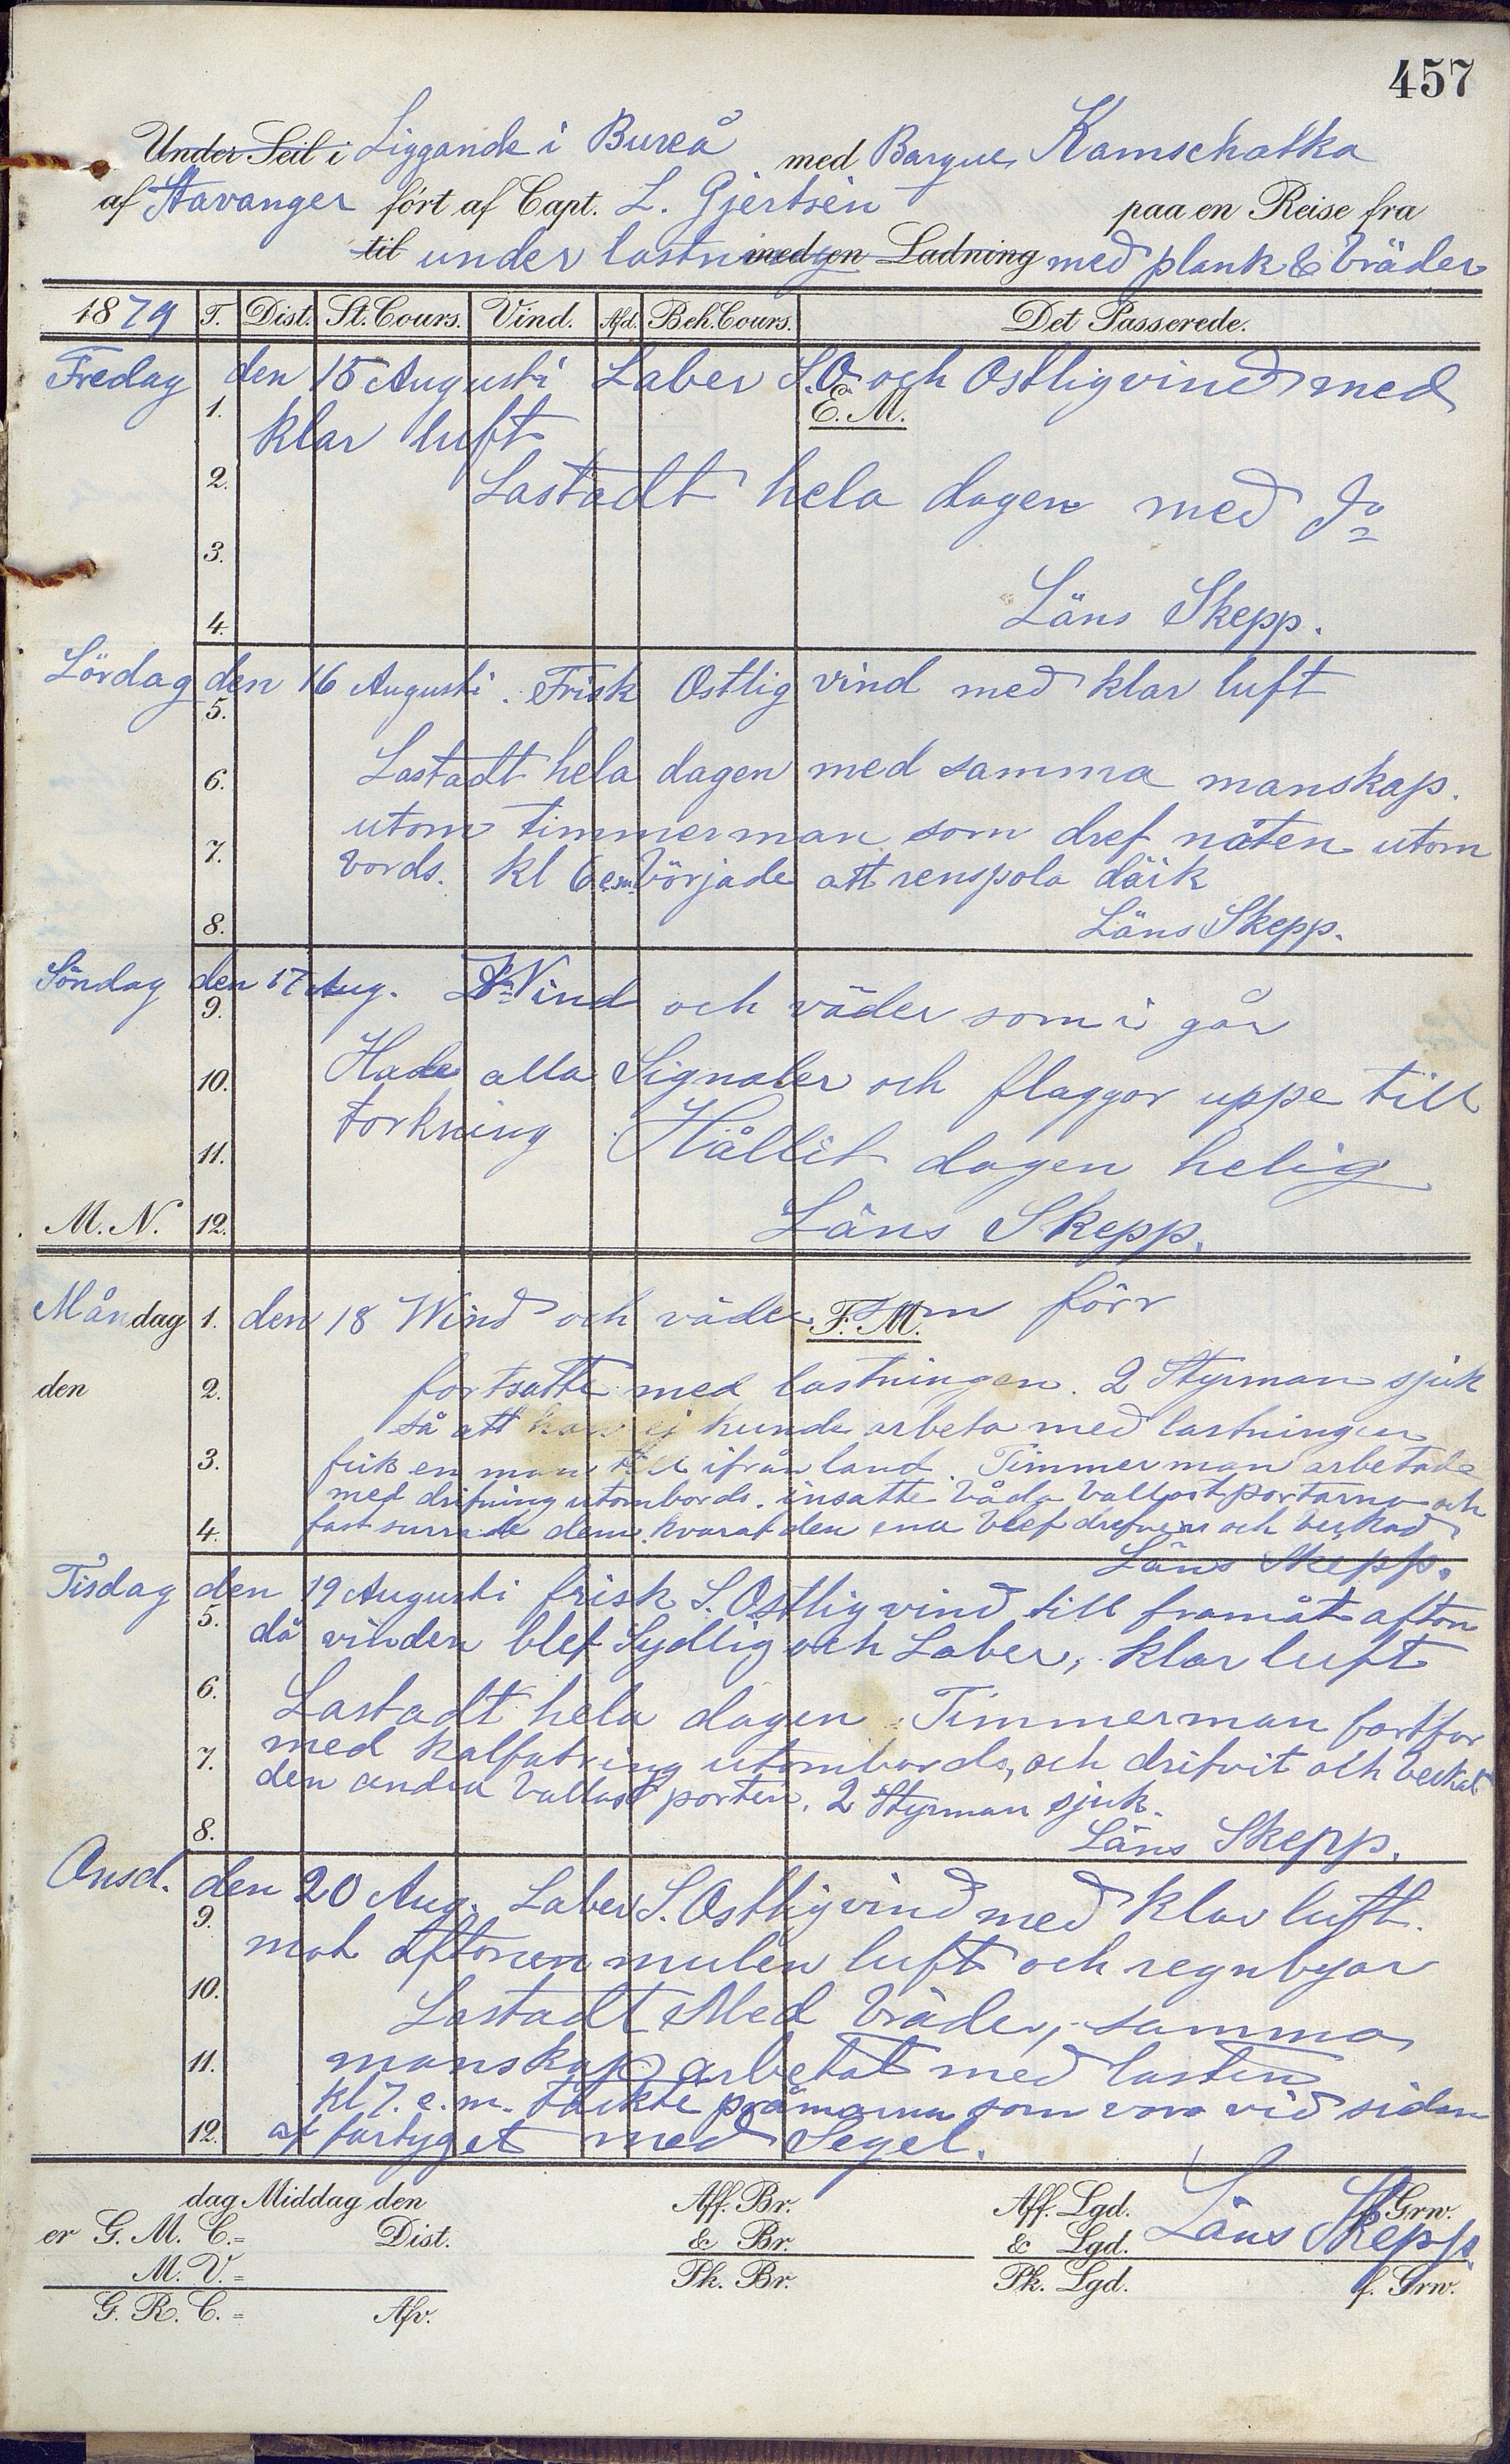 457
Under Seil i Liggande i Bureå med Barque Kamschatka
af Stavanger fört af Capt. L. Gjertsen paa en Reise fra
til under lastning med en Ladning med plank & bräder
1879 T. Dist. St. Cours. Vind. Afd. Beh. Cours. Det Passerede.
Fredag den 15 Augusti Laber S.O. och Ostlig vind med
1. E. M.
klar luft
2. Lastadt hela dagen med Do
3.
Läns Skepp.
4.
Lördag den 16 Augusti. Frisk Ostlig vind med klar luft
5.
6. Lastadt hela dagen med samma manskap.
utom timmerman som dref nåten utom
7. bords. kl 6 e.m. började att renspola däck
8. Läns Skepp.
Söndag den 17 Aug. Vind och väder som i går
9.
10. Hade alla Signaler och flaggor uppe till
torkning Hållit dagen helig
11.
M. N. 12. Läns Skepp.
Måndag 1. den 18 Wind och väder som förr
F. M.
den 2. fortsatte med lastningen. 2 Styrman sjuk
så att han ej kunde arbeta med lastningen
3. fick en man till ifrån land. Timmerman arbetade
med drifning utombords. insatte båda ballastportarna och
4. fastsurrade dem. hvaraf den ena blef drefven och beckad
Läns Skepp.
Tisdag den 19 Augusti frisk S. Ostlig vind till framåt afton
5. då vinden blef Sydlig och Laber, klar luft
6. Lastadt hela dagen. Timmerman fortfor
med kalfatring utombords, och drifvit och beckat
7. den andra ballast porten. 2 Styrman sjuk.
8. Läns Skepp.
Onsd. den 20 Aug. Laber S. Ostlig vind med klar luft.
9. mot aftonen mulen luft och regnbyar
10. Lastadt Med bräder, samma
11. manskap arbetat med lasten
kl 7. e.m. täckte pråmarna som voro vid sidan
12. af fartyget med Segel.
Läns Skepp.
dag Middag den Aff. Br. Aff. Lgd. f. Grw.
er G. M. C.= Dist. & Br. & Lgd.
M. V.= Pk. Br. Pk. Lgd. f. Grw.
G. R. C.= Afv.